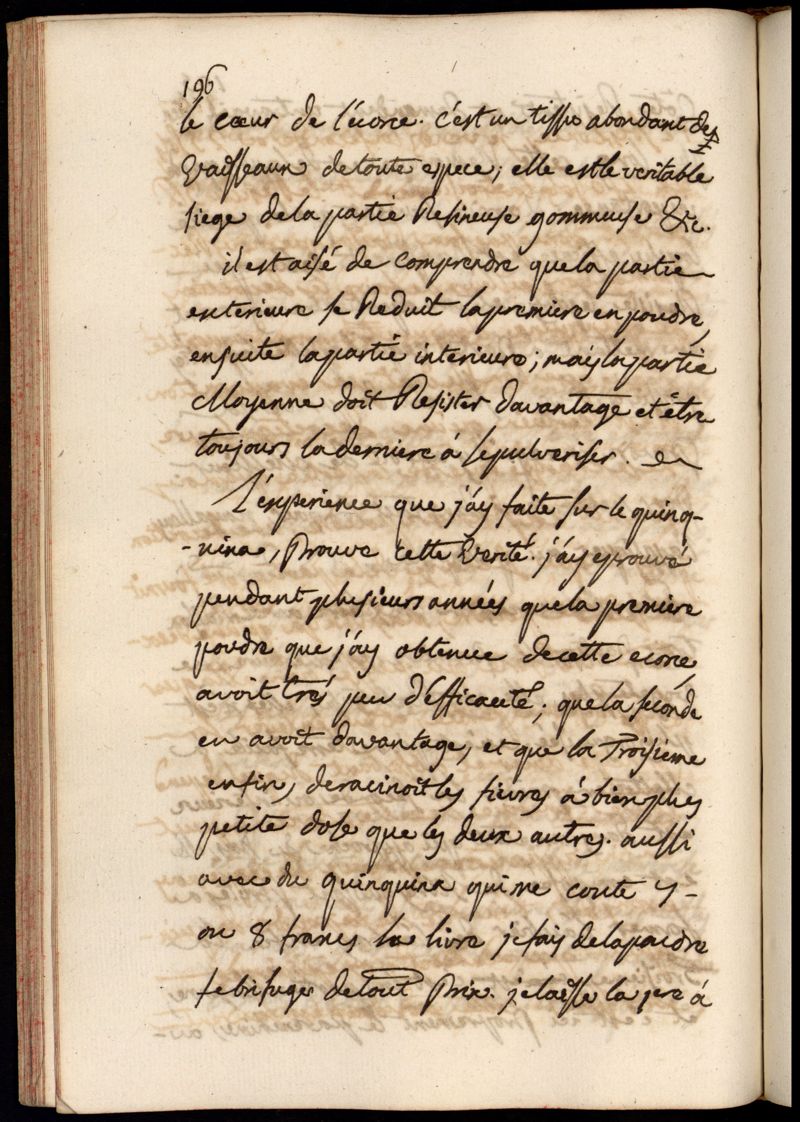 196
le cœur de l'écorce. c'est un tissu abondant des
vaisseaux de toute espece; elle est le veritable
siege de la partie Resineuse gommeuse &c.
il est aisé de comprendre que la partie
exterieure se Reduit la premiere en poudre,
ensuite la partie interieure; mais la partie
Moyenne doit Resister davantage et être
toujours la derniere à se pulveriser.
L'experience que j'ay faite sur le quinq-
-nina, Prouve cette verité. j'ay eprouvé
pendant plusieurs années que la premiere
poudre que j'ay obtenue de cette ecorce,
avoit trés peu d'Efficacité; que la seconde
en avoit davantage, et que la Troisieme
enfin, deracinoit les fievres à bien plus
petite dose que les deux autres. aussi
avec du quinquina qui me coute 7-
ou 8 francs la livre je fais de la poudre
febrifuge de tout Prix. je laisse la 1ere à